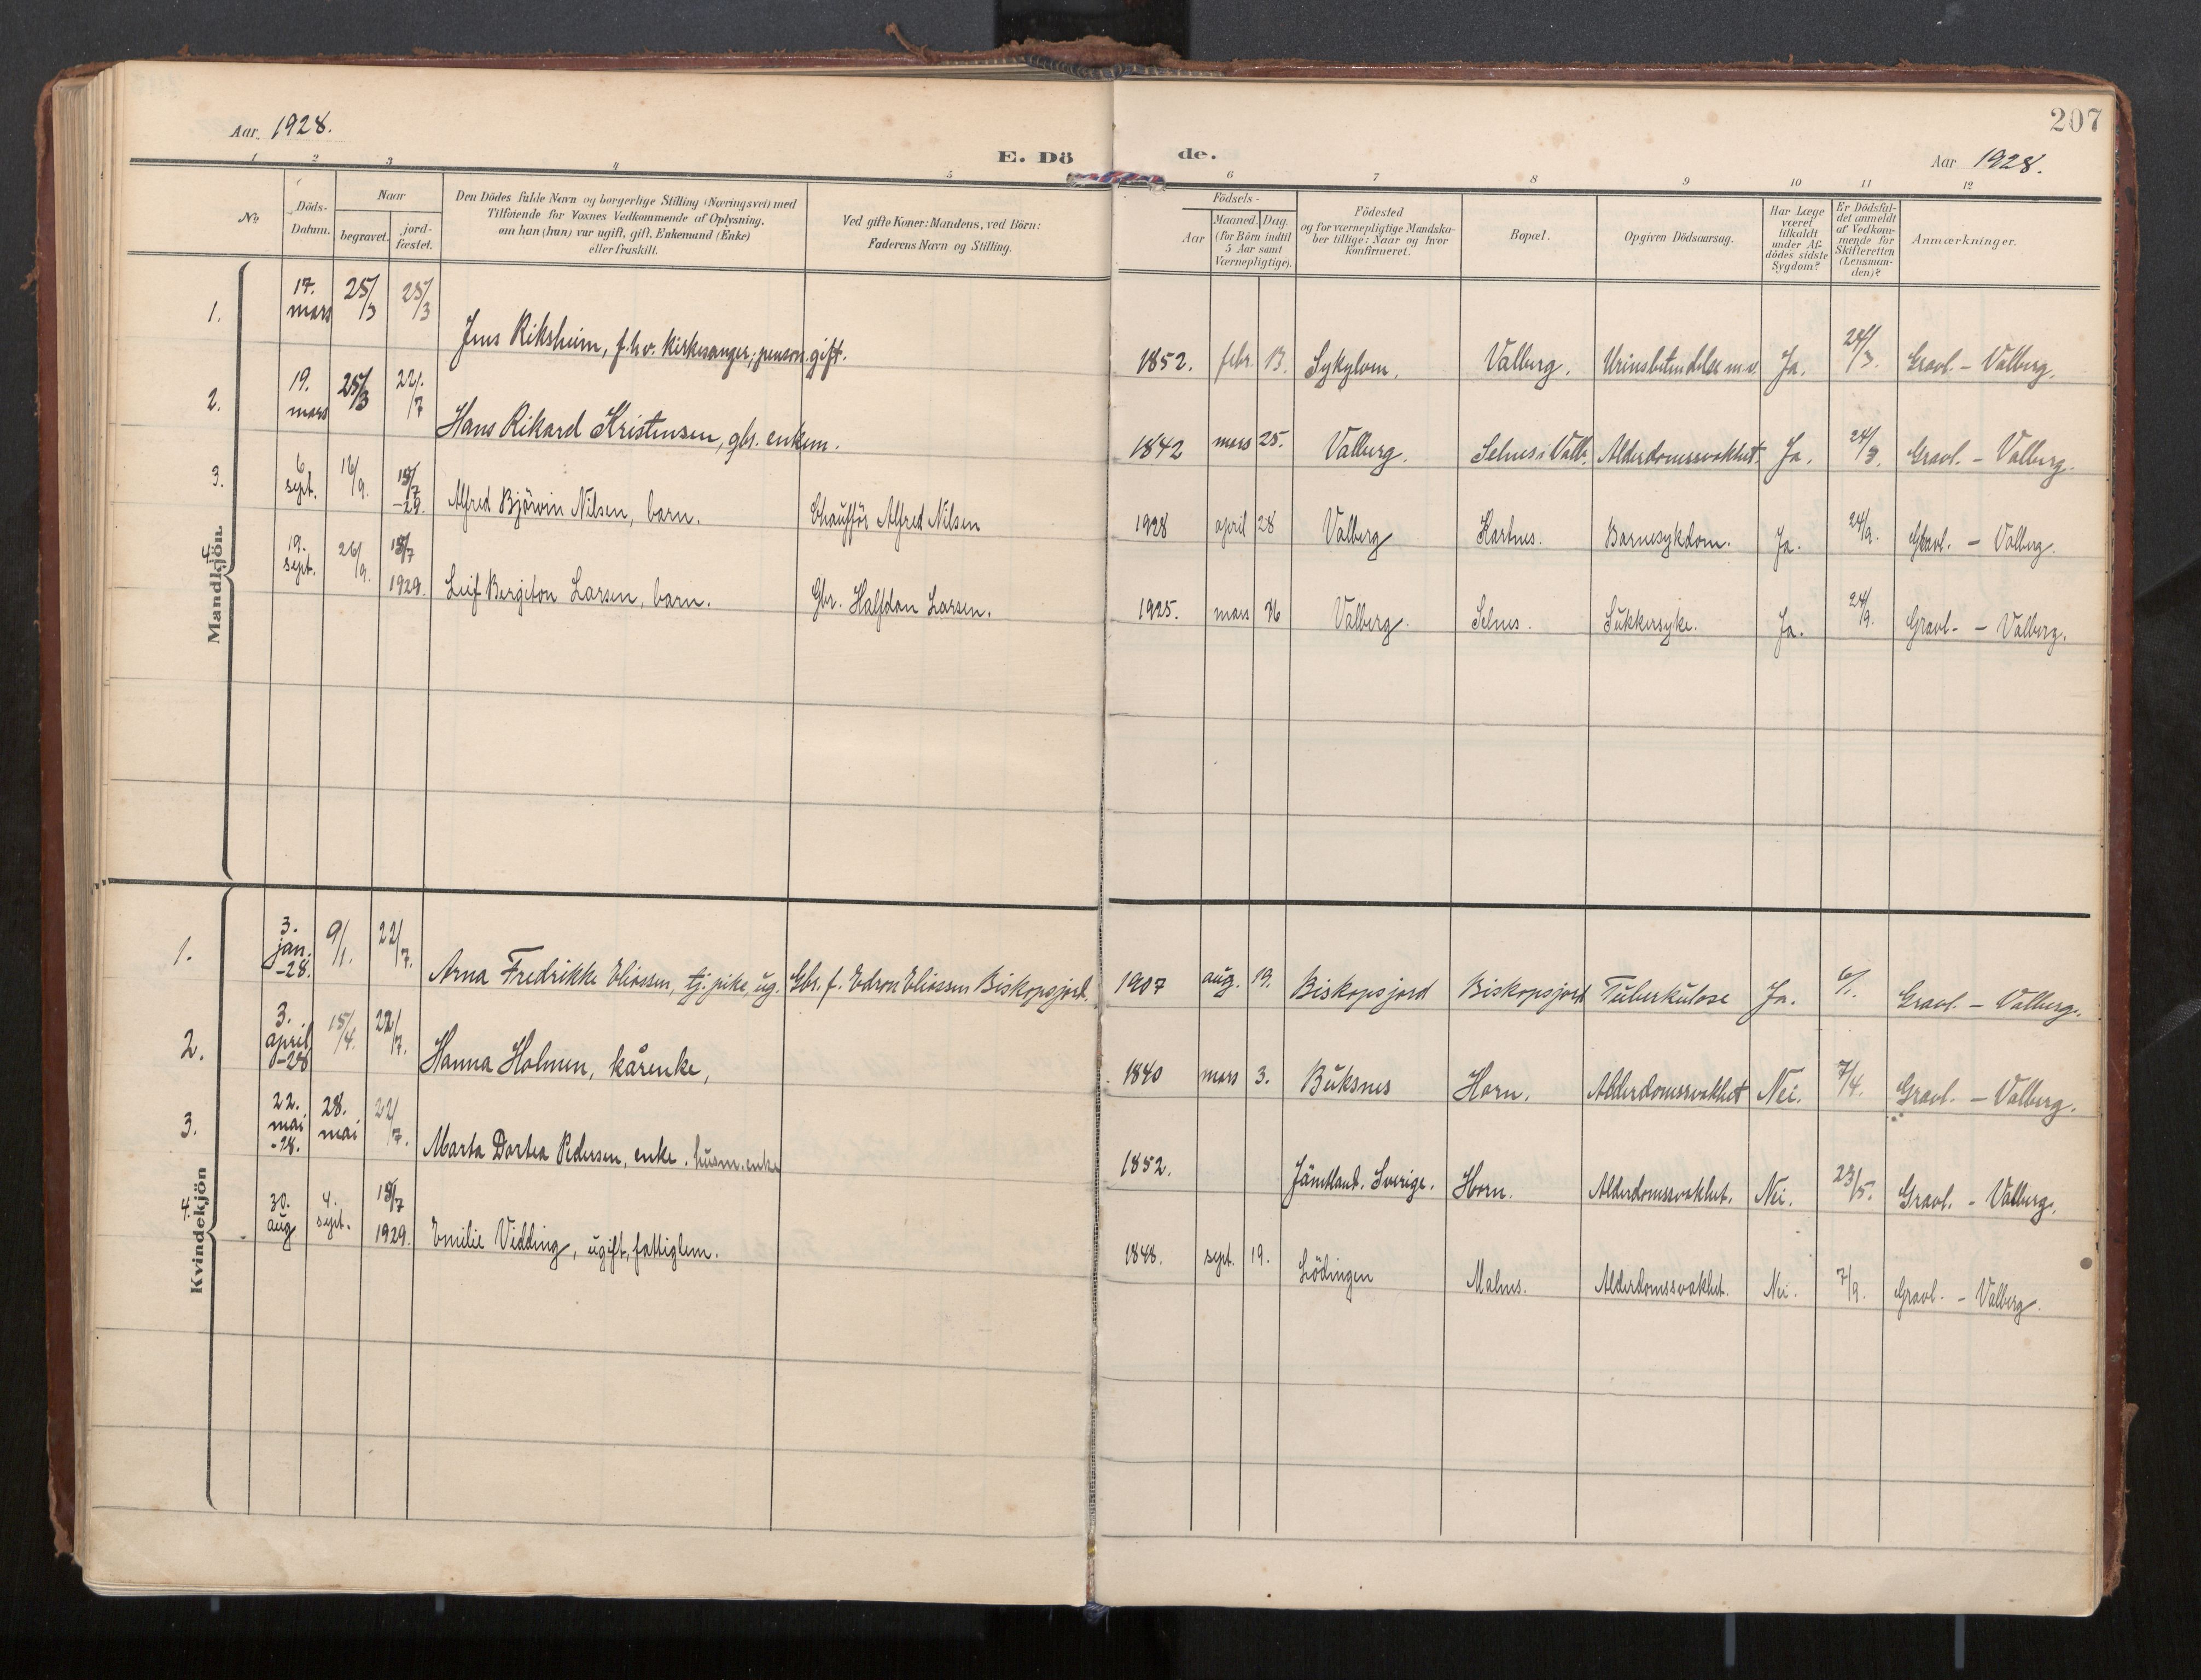 207
Aar 1928.
E. Dö de.
Aar 1928.
1 2 3 4 5 6 7 8 9 10 11 12
No.
Döds-
Datum.
Naar
begravet.
jord-
fæstet.
Den Dödes fulde Navn og borgerlige Stilling (Næringsvei) med
Tilföiende for Voxnes Vedkommende af Oplysning,
om han (hun) var ugift, gift, Enkemand (Enke)
eller fraskilt.
Ved gifte Koner: Mandens, ved Börn:
Faderens Navn og Stilling.
Födsels-
Aar
Maaned. Dag.
(for Börn indtil
5 Aar samt
Værnepligtige).
Födested
og for værnepligtige Mandska-
ber tillige: Naar og hvor
Konfirmeret.
Bopæl.
Opgiven Dödsaarsag.
Har Læge
været
tilkaldt
under Af-
dödes sidste
Sygdom?
Er Dödsfal-
det anmeldt
af Vedkom-
mende for
Skifteretten
(Lensman-
den)?
Anmærkninger.
Mandkjön.
1. 17. mars 25/3 25/3 Jens Riksheim, f.hv. kirkesanger, pension. gift. 1852. febr. 13. Sykylven. Valberg. Ja. 24/3. Gravl. - Valberg.
2. 19. mars 25/3 22/7 Hans Rikard Kristensen, gbr. enkem. 1842 mars 25. Valberg. Selnes i Valb. Alderdomssvakhet. Ja. 24/3. Gravl. - Valberg.
3. 6 sept. 16/9. 15/7 -29. Alfred Björvin Nilsen, barn. Chaufför Alfred Nilsen 1928 april 28 Valberg Kartnes. Barnesykdom. Ja. 24/9. Gravl. - Valberg.
4. 19. sept. 26/9. 15/7 1929. Leif Bergiton Larsen, barn. Gbr. Halfdan Larsen. 1925. mars Valberg. Selnes. Sukkersyke. Ja. 24/9. Gravl. - Valberg.
Kvindekjön
1. 3. jan. -28. 9/1. 22/7. Arna Fredrikke Eliassen, tj. pike, ug. Gbr. f. Edron Eliassen Biskopsjord. 1907 aug. 19. Biskopsjord Biskopsjord Tuberkulose Ja. 6/1. Gravl. - Valberg.
2. 3. april -28 15/4. 22/7. Hanna Holmen, kårenke, 1840 mars 3. Buksnes Horn. Alderdomssvakhet Nei. 7/4. Gravl. - Valberg.
3. 22. mai -28. 28. mai 22/7. Marta Dortea Pedersen, enke. husm.enke 1852. Jämtland. Sverige. Horn. Alderdomssvakhet. Nei. 23/5. Gravl. - Valberg.
4. 30. aug 4. sept. 15/7 1929. Emilie Vidding, ugift, fattiglem. 1848. sept. 19. Lödingen Malnes. Alderdomssvakhet. Nei. 7/9. Gravl. - Valberg.